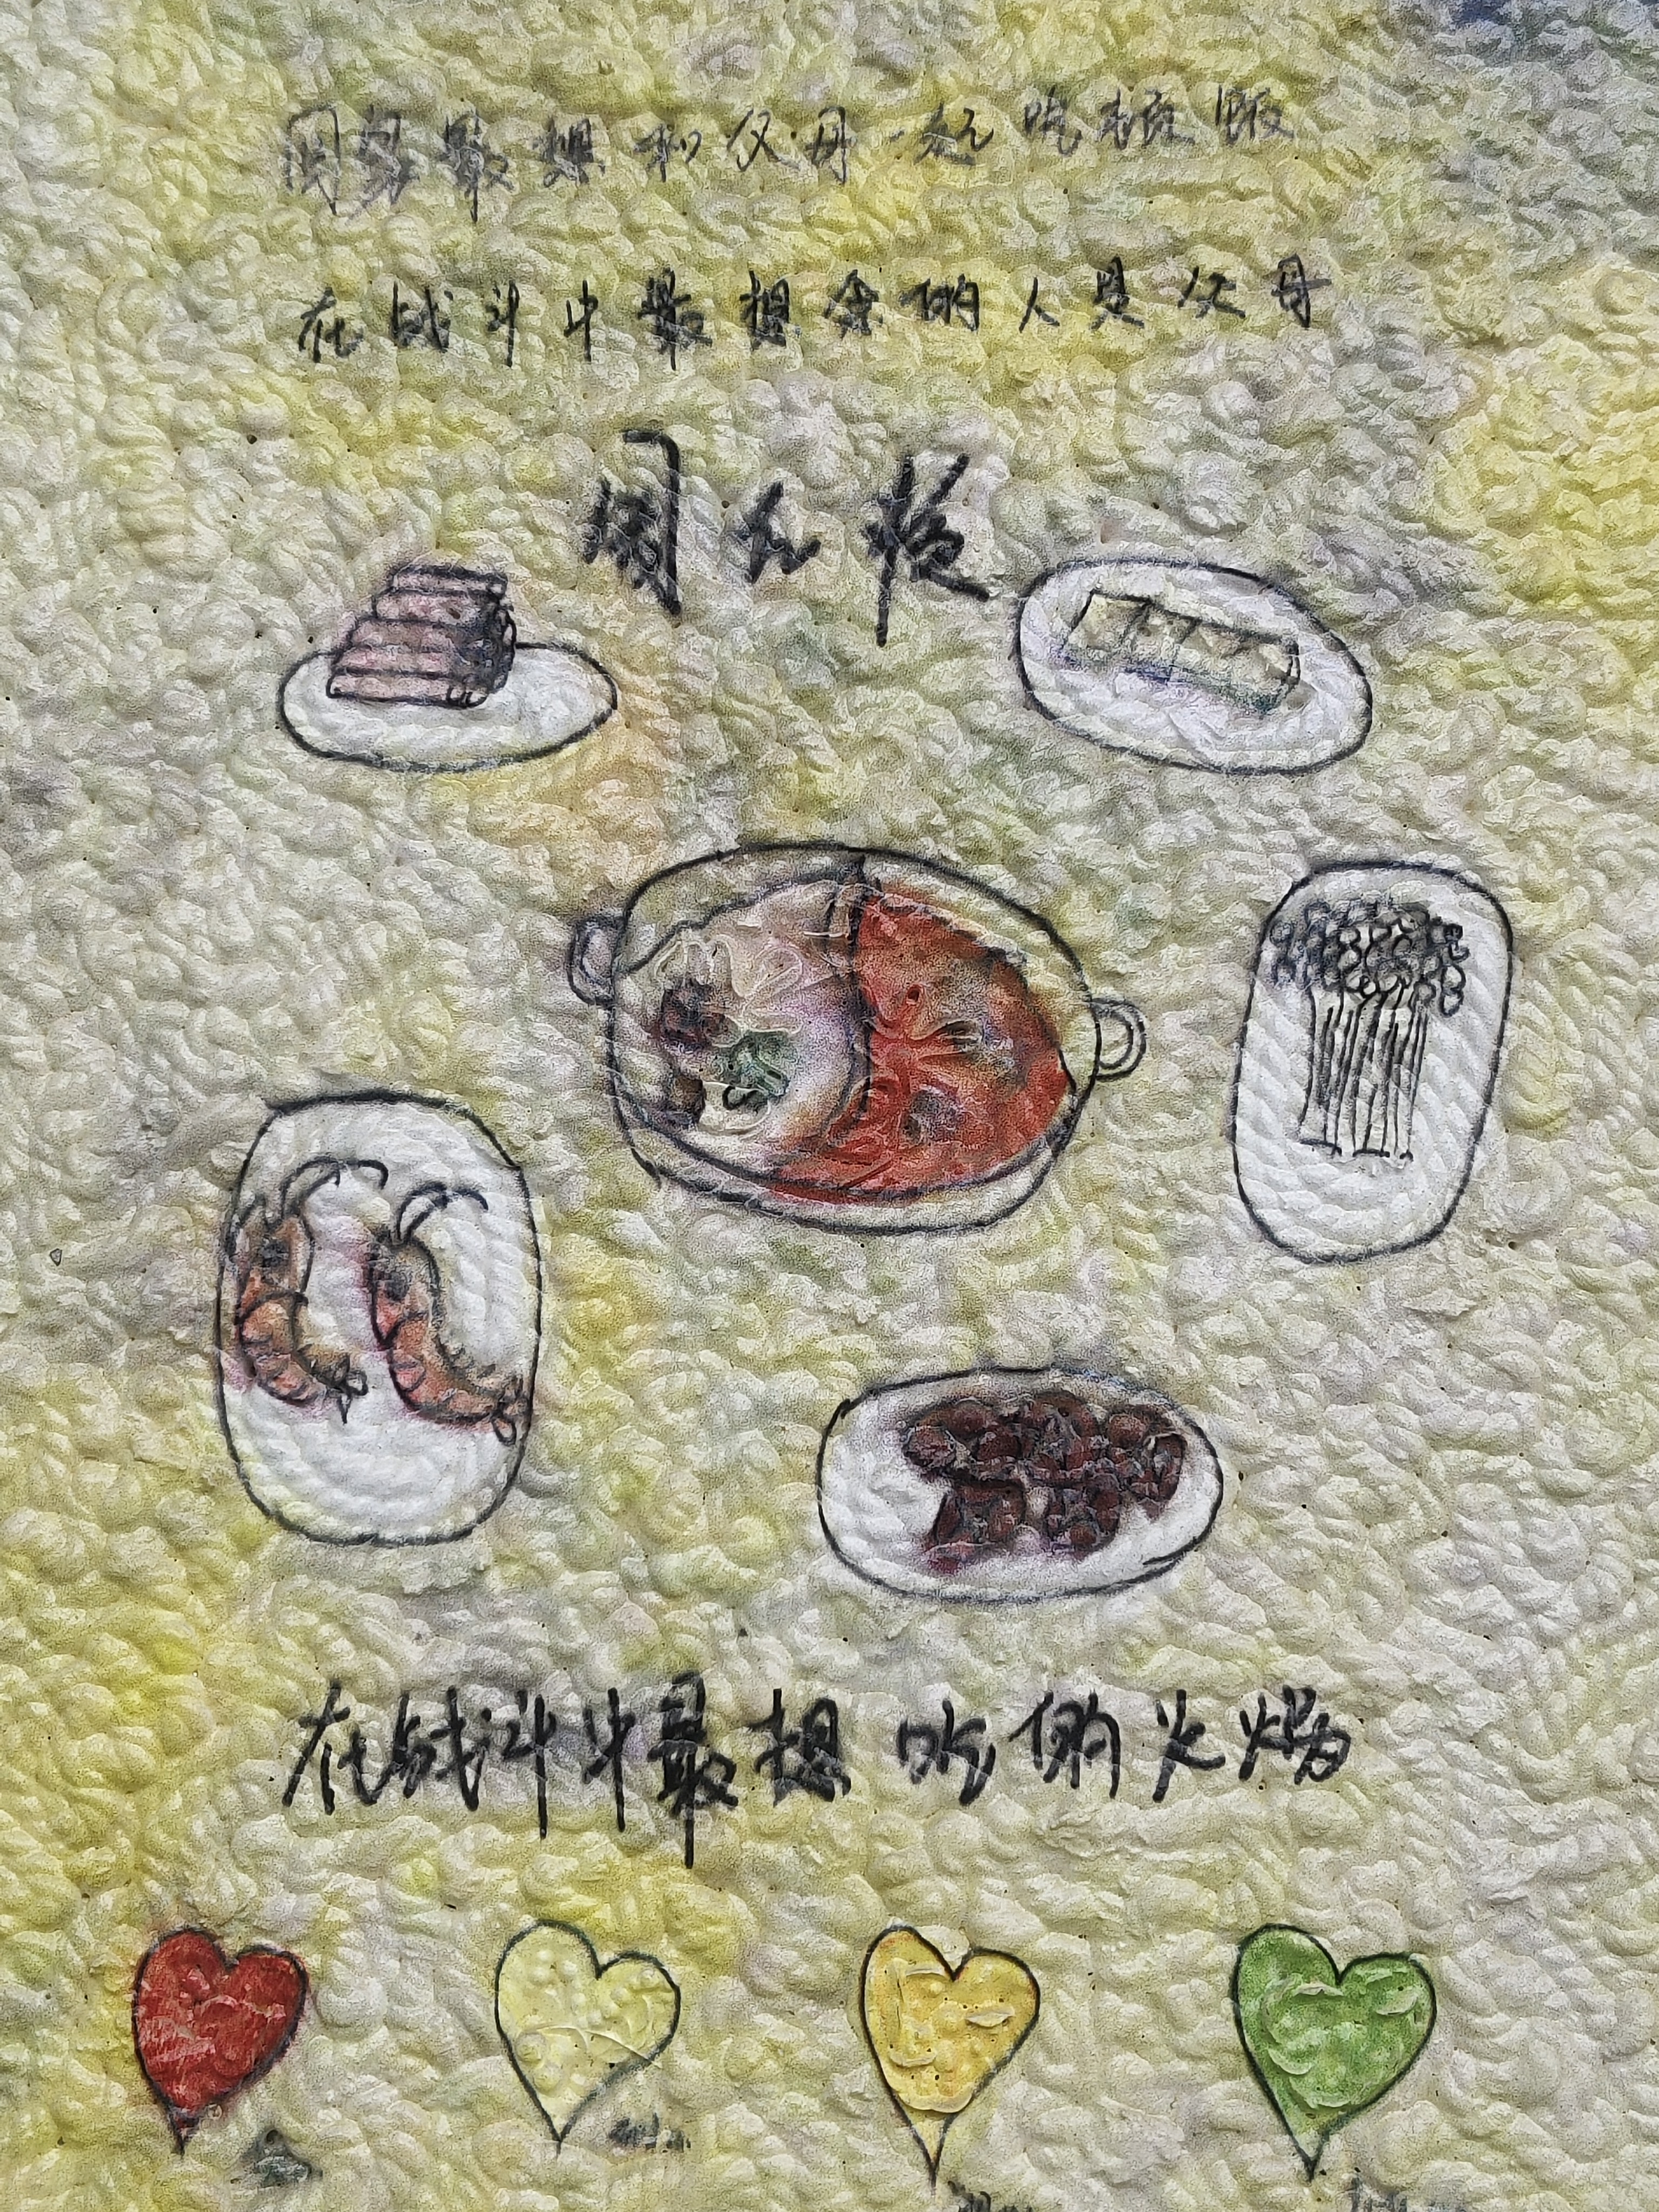 最想和父母一起吃顿饭
在战斗中最想念的人是父母
在战斗中最想吃的火锅